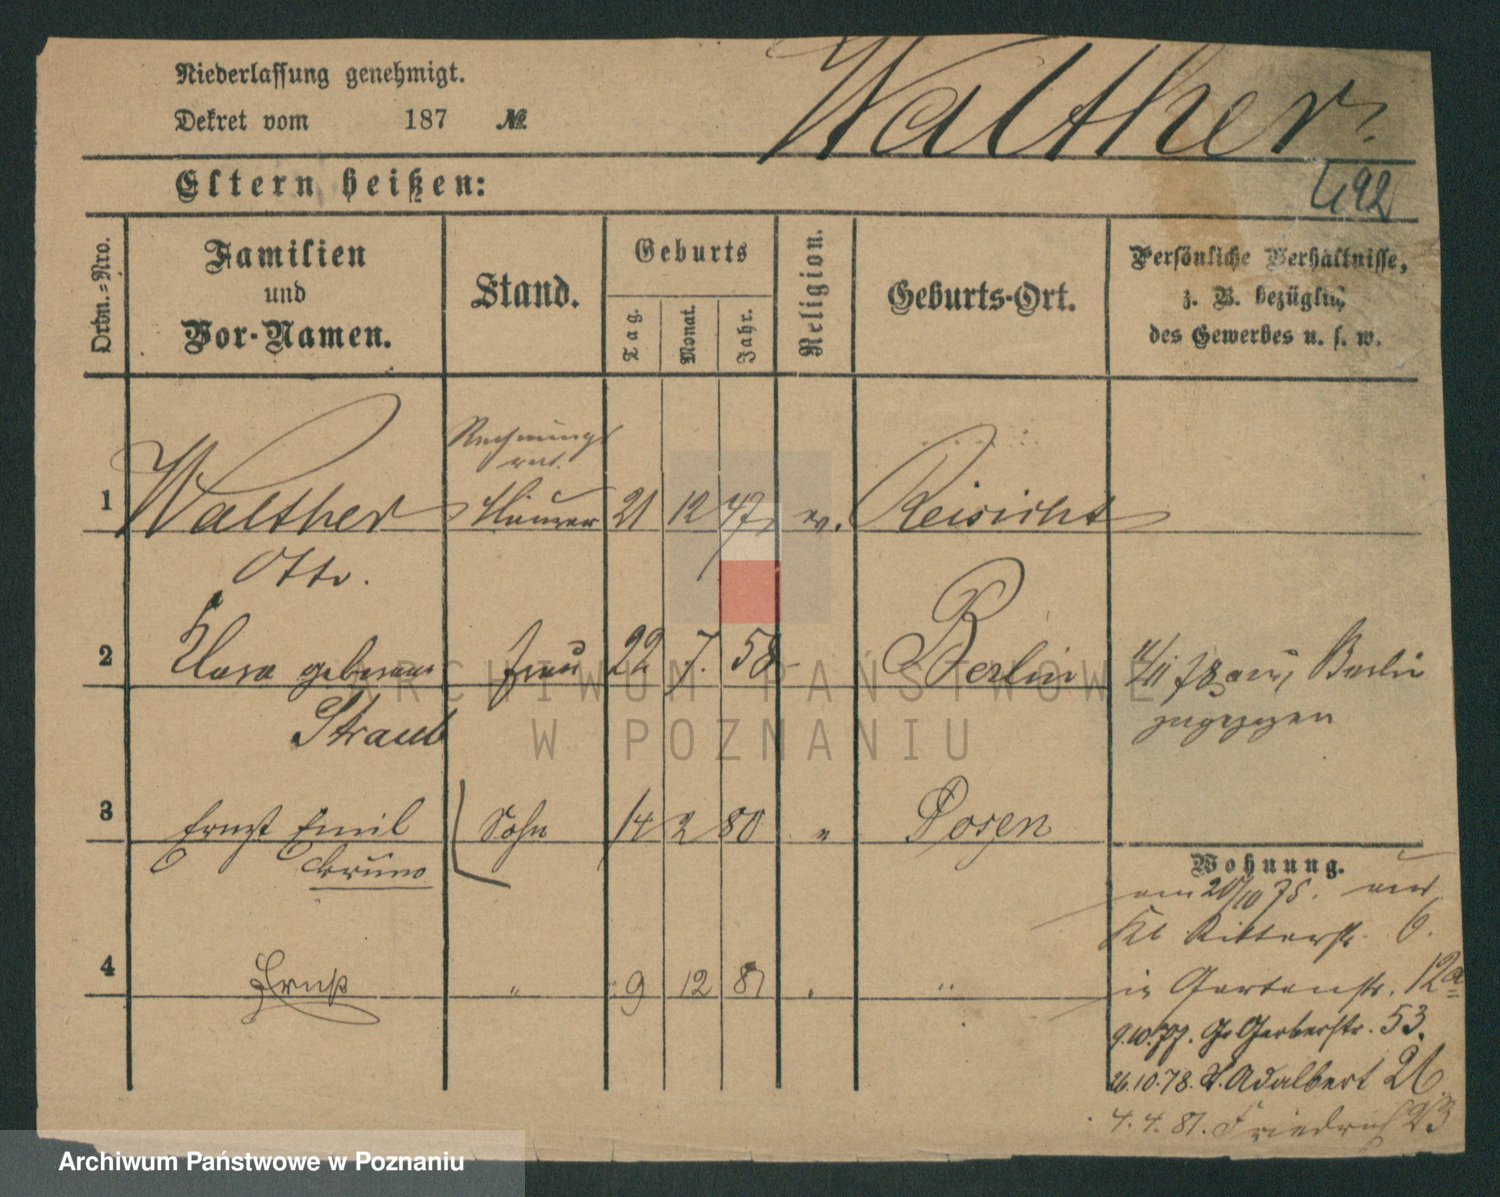 Niederlassung genehmigt.
Dekret vom 187 №
Walther
492
Eltern heißen:
Ordn.=Nro.
Familien
und
Vor-Namen.
Stand.
Geburts
Tag.
Monat.
Jahr.
Religion.
Geburts-Ort.
Persönliche Verhältnisse,
z. B. bezüglich
des Gewerbes u. s. w.
Rechnungs
rat.
1 Walther 21 12 47 ev. Reisicht
Otto.
2 Klara geborene Frau 22 7. 58 Berlin 4/11 78 aus Berlin
Straub zugezogen
3 Ernst Emil Sohn 14 2 80 " Posen
Bruno
Wohnung.
am 20/10 75. aus
Kl. Ritterstr. 6.
4 Ernst " 9 12 81 " "
in Gartenstr. 12a
9.10.77. Gr Gerberstr. 53.
26.10.78. St. Adalbert 26
4. 4. 81. Friedrich 23
ARCHIWUM PAŃSTWOWE
W POZNANIU
Archiwum Państwowe w Poznaniu